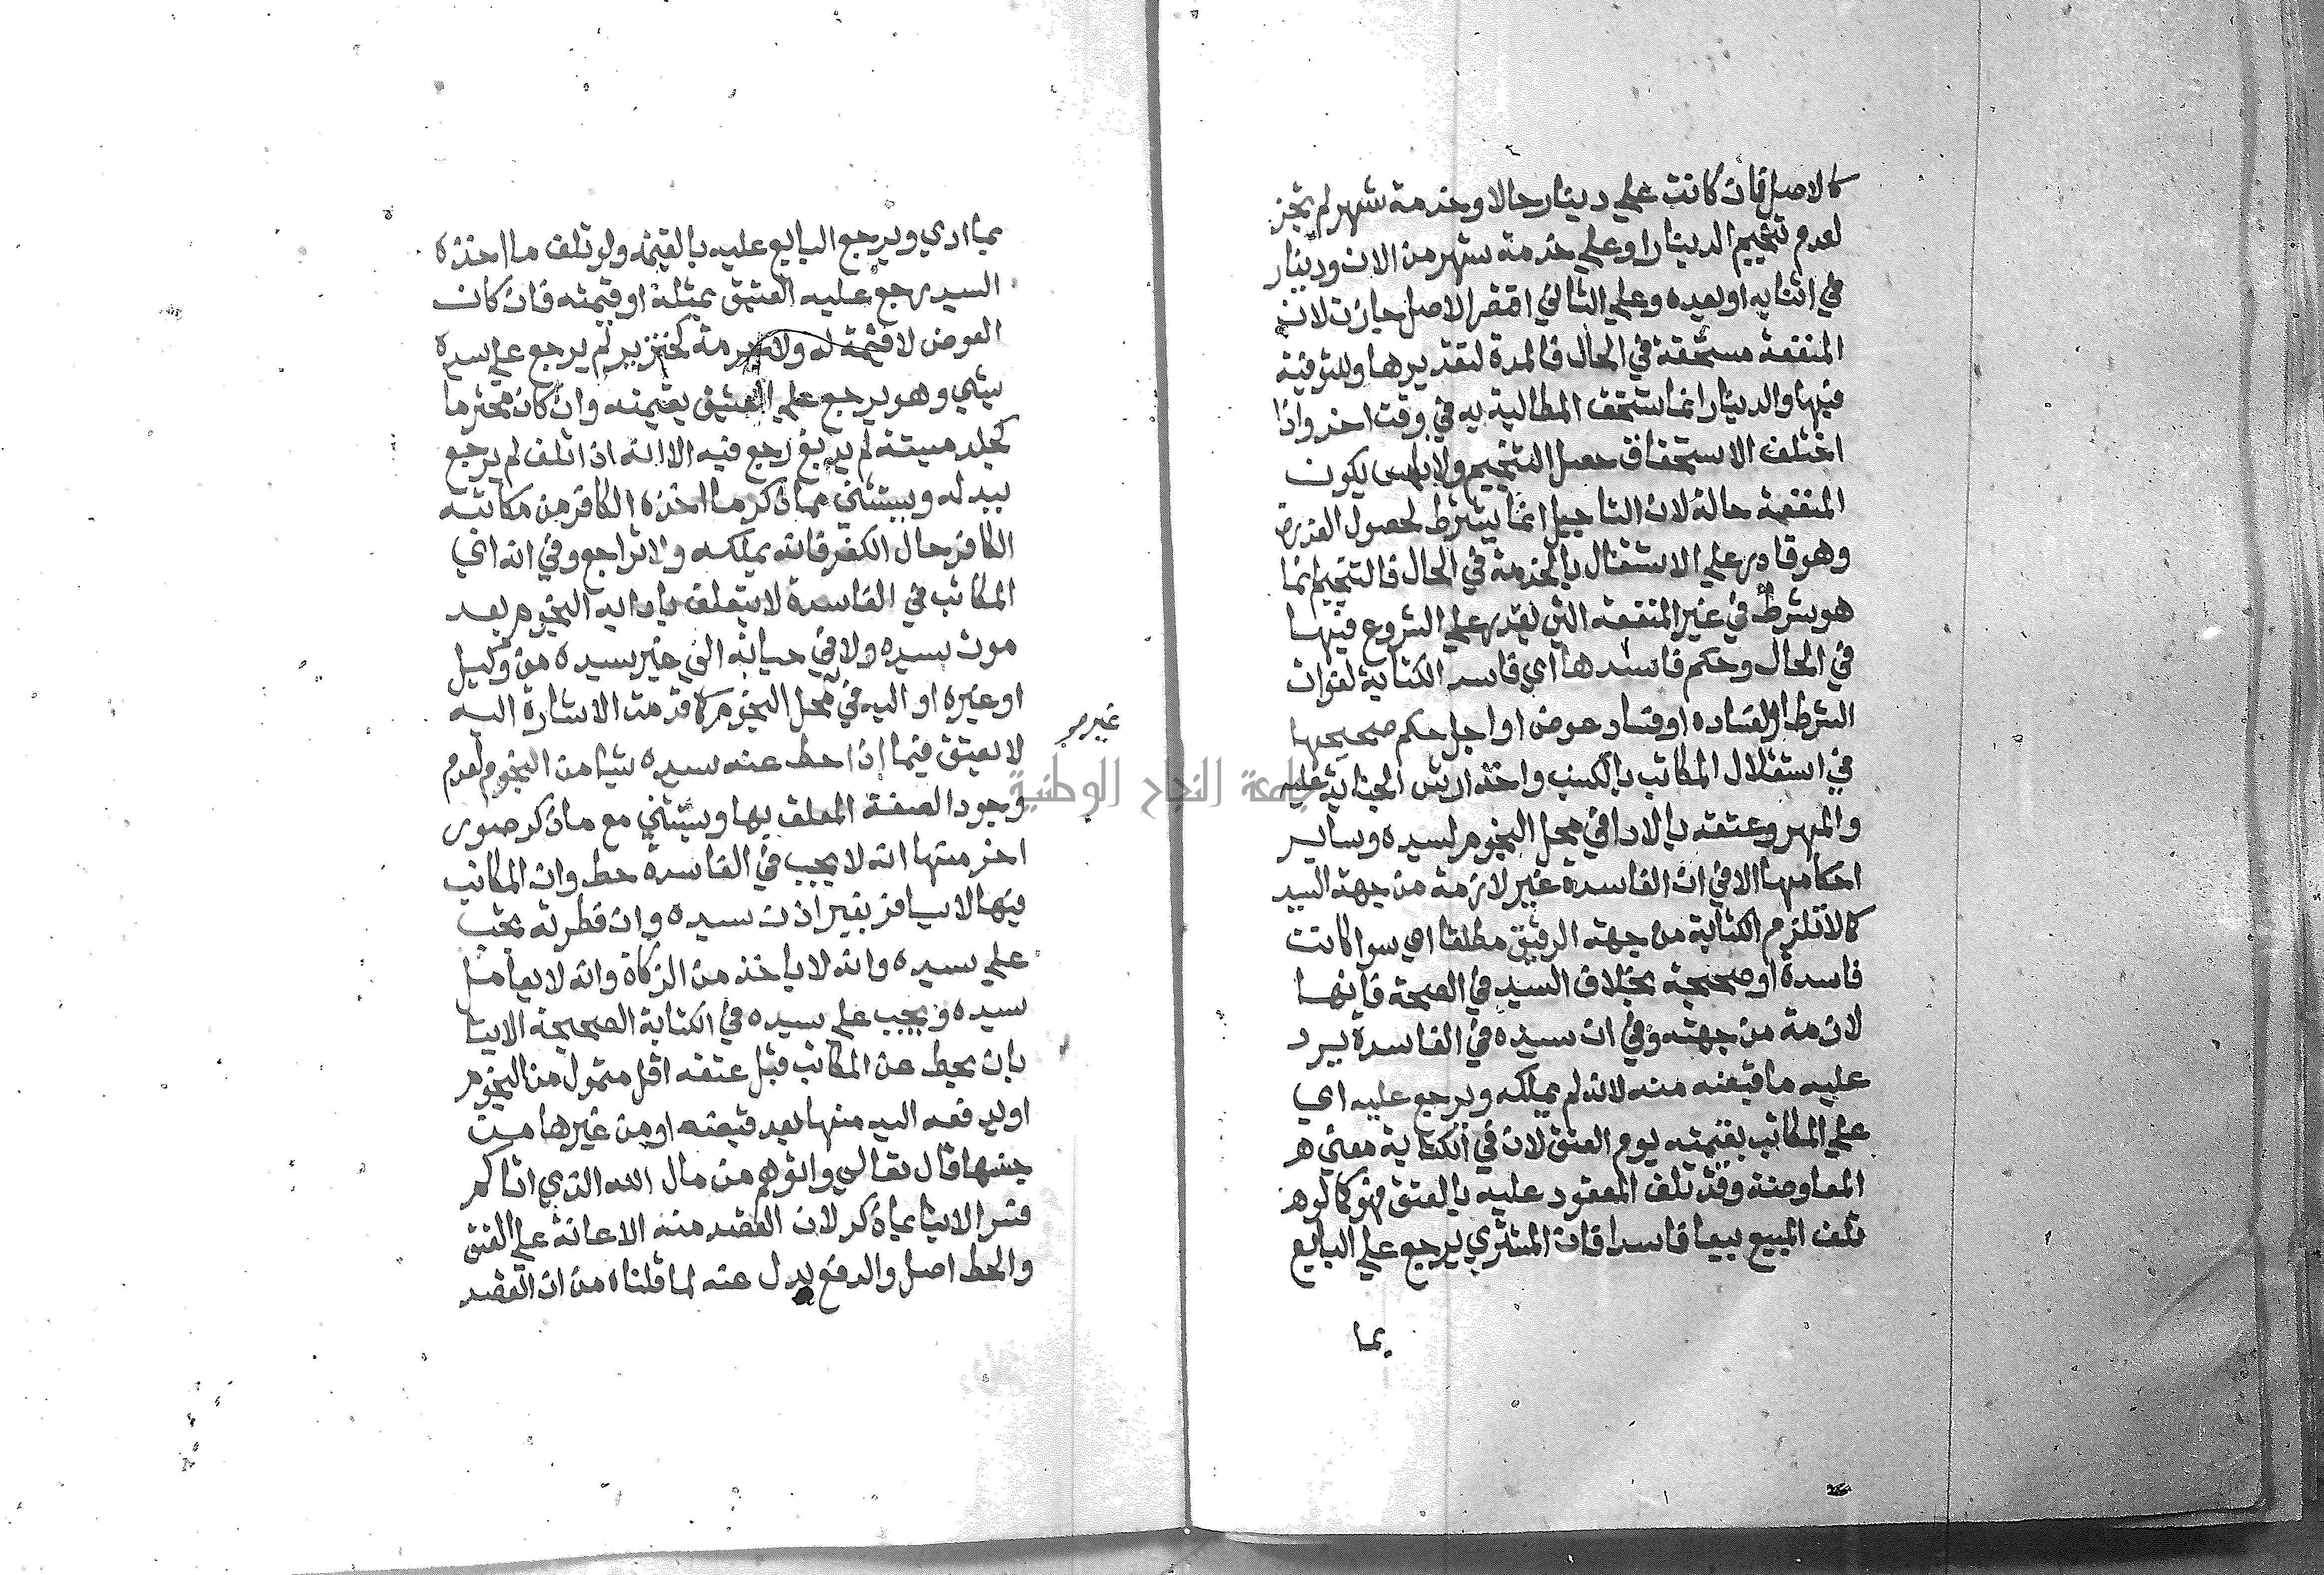 كالاصل فان كانت علي دينار حالا وخدمة شهر لم يجز
لعدم تنجيم الدينار او علي خدمة شهر من الان ودينار
في اثنايه او بعده وعلي الثاني اقتصر الاصل جازت لان
المنفعة مستحقة في الحال فالمدة لتقديرها وللتوفية
فيها والدينار انما يستحق المطالبة به في وقت اخر واذا
اختلف الاستحقاق حصل التنجيم ولا باس بكون
المنفعة حالة لان التاجيل انما يشترط لحصول القدرة
وهو قادر علي الاشتغال بالخدمة في الحال فالتنجيم انما
هو شرط في غير المنفعة التي يقدر علي الشروع فيها
في الحال وحكم فاسدها اي فاسد الكتابة لفوات
الشرط او لفساده او فساد عوض او اجل حكم صحيحها
في استقلال المكاتب بالكسب واخذ ارش الجناية عليه
والمهر وعتقه بالادا في محل النجوم لسيده وساير
احكامها الا في ان الفاسدة غير لازمة من جهة السيد
كالا تلزم الكتابة من جهة الرقيق مطلقا اي سوا كانت
فاسدة او صحيحة بخلاف السيد في الصحة فانها
لازمة من جهته وفي ان سيده في الفاسدة يرد
عليه ما قبضه منه لانه لم يملكه ويرجع عليه اي
علي المكاتب بقيمته يوم العتق لان في الكتابة معني
المعاوضة وقد تلف المعقود عليه بالعتق فهو كالو
تلف المبيع بيعا فاسدا فان المشتري يرجع علي البايع
بما
بما ادي ويرجع البايع عليه بالقيمة ولو تلف ما اخذه
السيد رجع عليه العتيق بمثله او قيمته فان كان
العوض لا قيمة له ولا حرمة كخنزير لم يرجع علي سيده
بشي وهو يرجع علي العتيق بقيمته وان كان محترما
كجلد ميتة لم يدبغ رجع فيه الا انه اذا تلف لم يرجع
ببدله ويستثني مما ذكر ما اخذه الكافر من مكاتبه
الكافر حال الكفر فانه يملكه ولا تراجع وفي انه اي
المكاتب في الفاسدة لا يتعلق بادايه النجوم بعد
موت سيده ولا في حياته الي غير سيده من وكيل
او غيره او اليه في محل النجوم كا قدمت الاشارة اليه
غير
لا يعتق فيما اذا حط عنه سيده شيا من النجوم لعدم
وجود الصفة المعلق بها ويستثني مع ما ذكر صور
اخر منها انه لا يجب في الفاسدة حط وان المكاتب
فيها لا يسافر بغير اذن سيده وان فطرته تجب
علي سيده وانه لا ياخذ من الزكاة وانه لا يعامل
سيده ويجب علي سيده في الكتابة الصحيحة الايتا
بان يحط عن المكاتب قبل عتقه اقل متمول من النجوم
او يدفعه اليه منها بعد قبضه او من غيرها من
جنسها قال تعالي واتوهم من مال الله الذي اتاكم
فسر الايتا بما ذكر لان القصد منه الاعانة علي العتق
والحط اصل والدفع بدل عنه لما قلناه من ان القصد
جامعة النجاح الوطنية